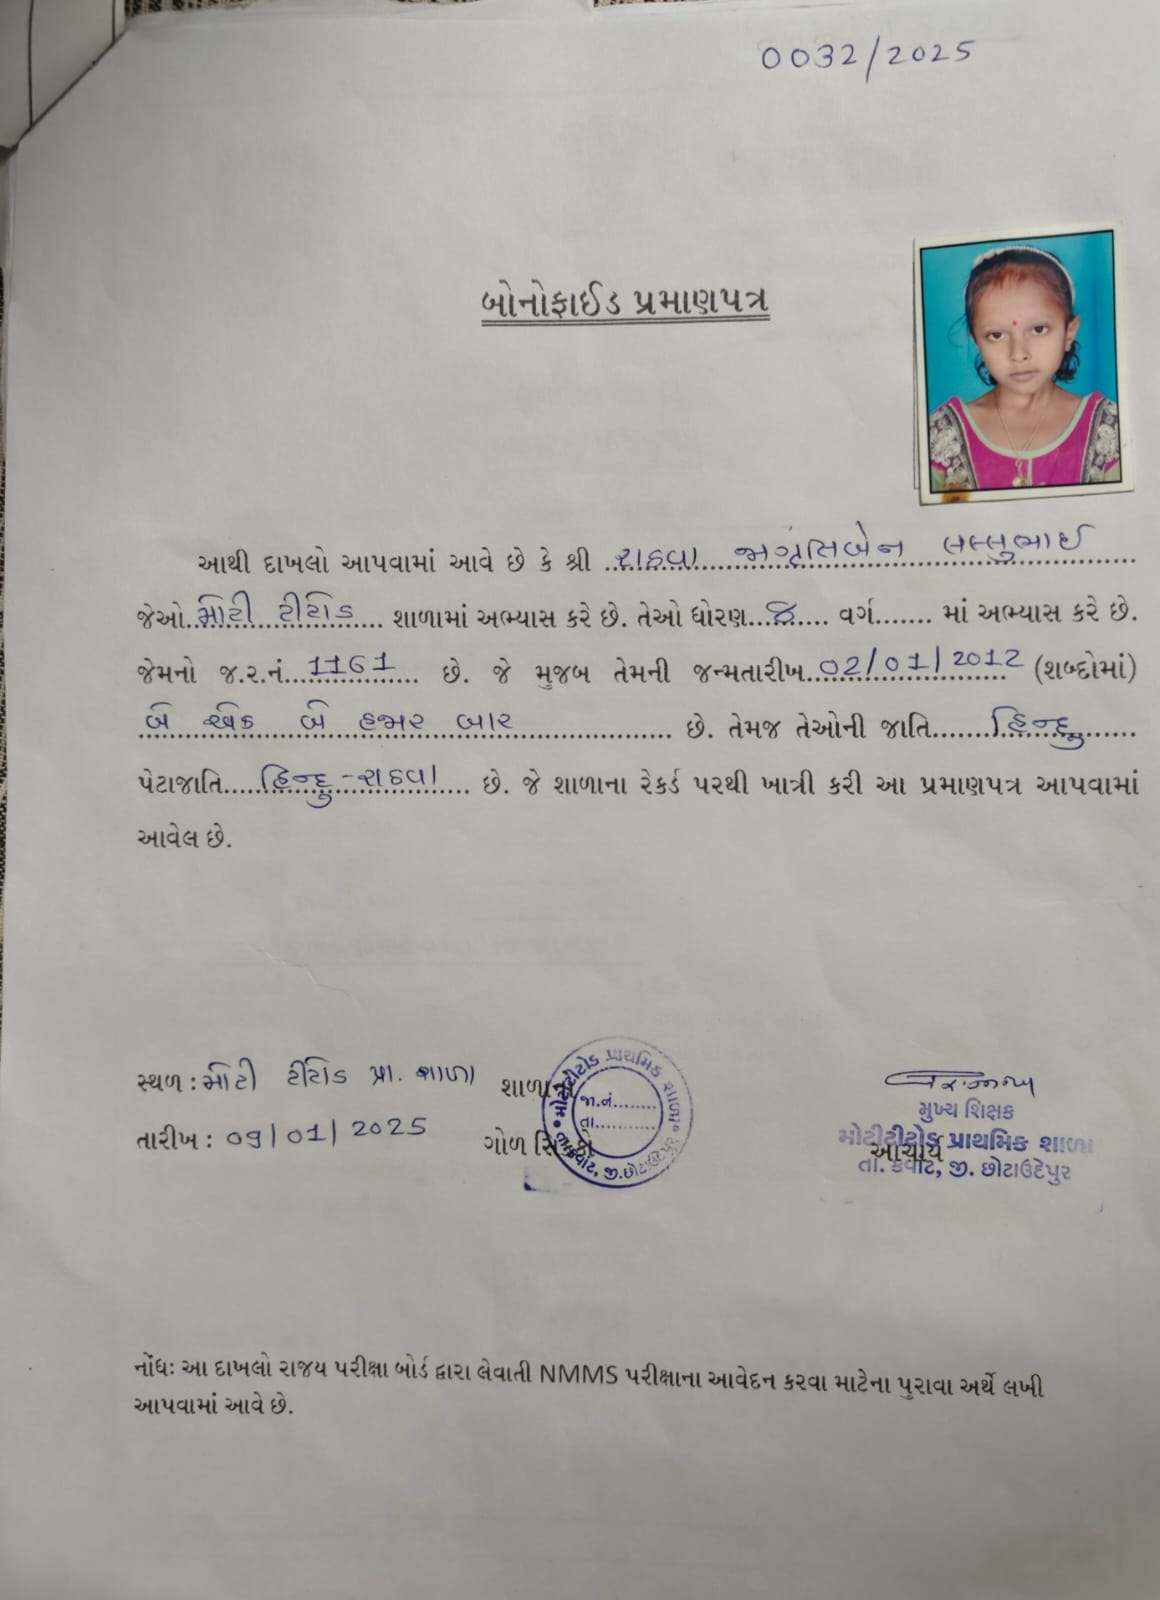 0032/2025
બોનોફાઈડ પ્રમાણપત્ર
આથી દાખલો આપવામાં આવે છે કે શ્રી ..રાઠવા જાગૃતિબેન લલ્લુભાઈ
જેઓ..મોટી ટીંટોડ.... શાળામાં અભ્યાસ કરે છે. તેઓ ધોરણ...૪.... વર્ગ....... માં અભ્યાસ કરે છે.
જેમનો જ.ર.નં...1161... છે. જે મુજબ તેમની જન્મતારીખ..02/01/2012 (શબ્દોમાં)
બે એક બે હજાર બાર.................... છે. તેમજ તેઓની જાતિ.......હિન્દુ.......
પેટાજાતિ.....હિન્દુ-રાઠવા.... છે. જે શાળાના રેકર્ડ પરથી ખાત્રી કરી આ પ્રમાણપત્ર આપવામાં
આવેલ છે.
સ્થળ : મોટી ટીંટોડ પ્રા. શાળા
શાળાનો
તારીખ : 09/01/2025
ગોળ સિક્કો
મોટીટીંટોડ પ્રાથમિક શાળા
જા.નં........
તા...........
મુખ્ય શિક્ષક
મોટીટીંટોડ પ્રાથમિક શાળા
આચાર્ય
તા. કવાંટ, જી. છોટાઉદેપુર
નોંધઃ આ દાખલો રાજય પરીક્ષા બોર્ડ દ્વારા લેવાતી NMMS પરીક્ષાના આવેદન કરવા માટેના પુરાવા અર્થે લખી
આપવામાં આવે છે.